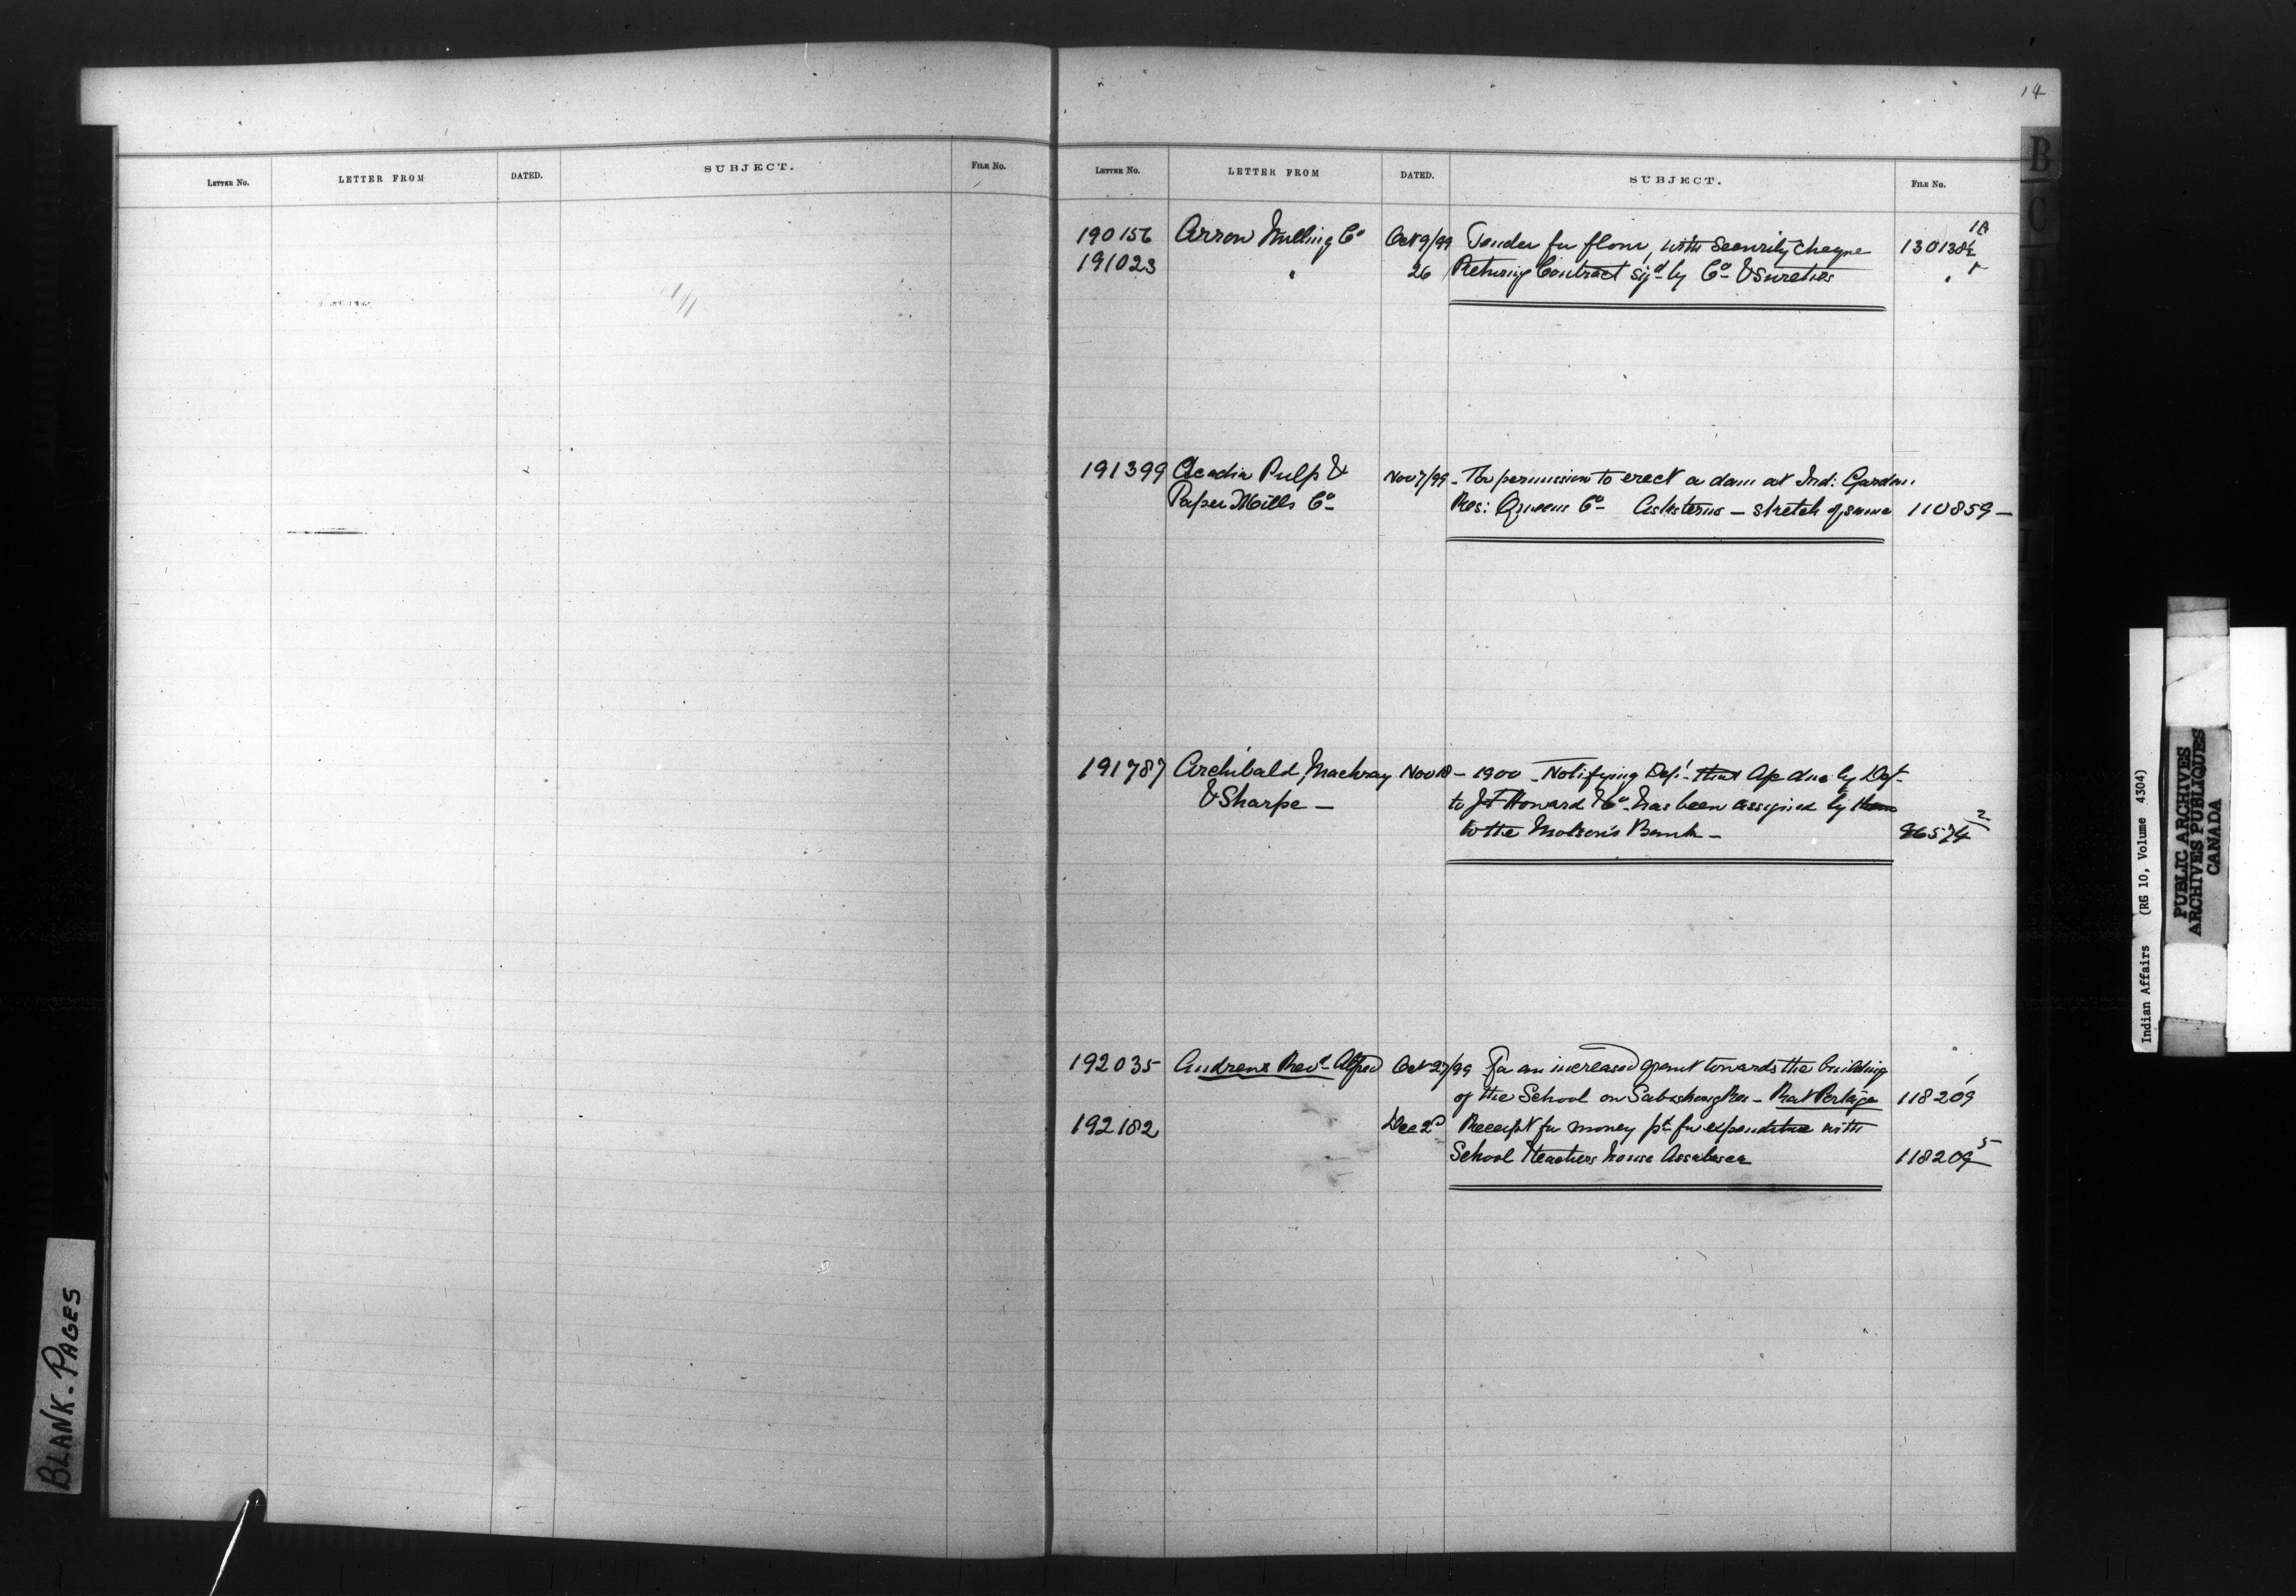 14
LETTER NO. LETTER FROM DATED. SUBJECT. FILE NO.
LETTER NO. LETTER FROM DATED. SUBJECT. FILE NO.
B
190156 Arrow Milling Co Oct 9/99 Tender for flour, with Security Cheque 130138½ 1A
191023 " 26 Returning Contract sigd by Co & Sureties "
191399 Acadia Pulp & Nov 7/99 - For permission to erect a dam at Ind: Garden
Paper Mills Co Res: Queens Co Asks terms - sketch of same 110859 -
191787 Archibald, Machray Nov 18 - 1900 - Notifying Dept that a/c due by Dept
& Sharpe - to J F Howard & Co has been assigned by them
to the Molson's Bank - 86574 2
192035 Andrews Revd Alfred Oct 27/99 For an increased grant towards the building
of the School on Res - Rat Portage 118209
192182 Dec 2d Receipt for money pd for expenditure with
School & teachers house Assabasca 118209 5
BLANK-PAGES
Indian Affairs (RG 10, Volume 4304)
PUBLIC ARCHIVES
ARCHIVES PUBLIQUES
CANADA